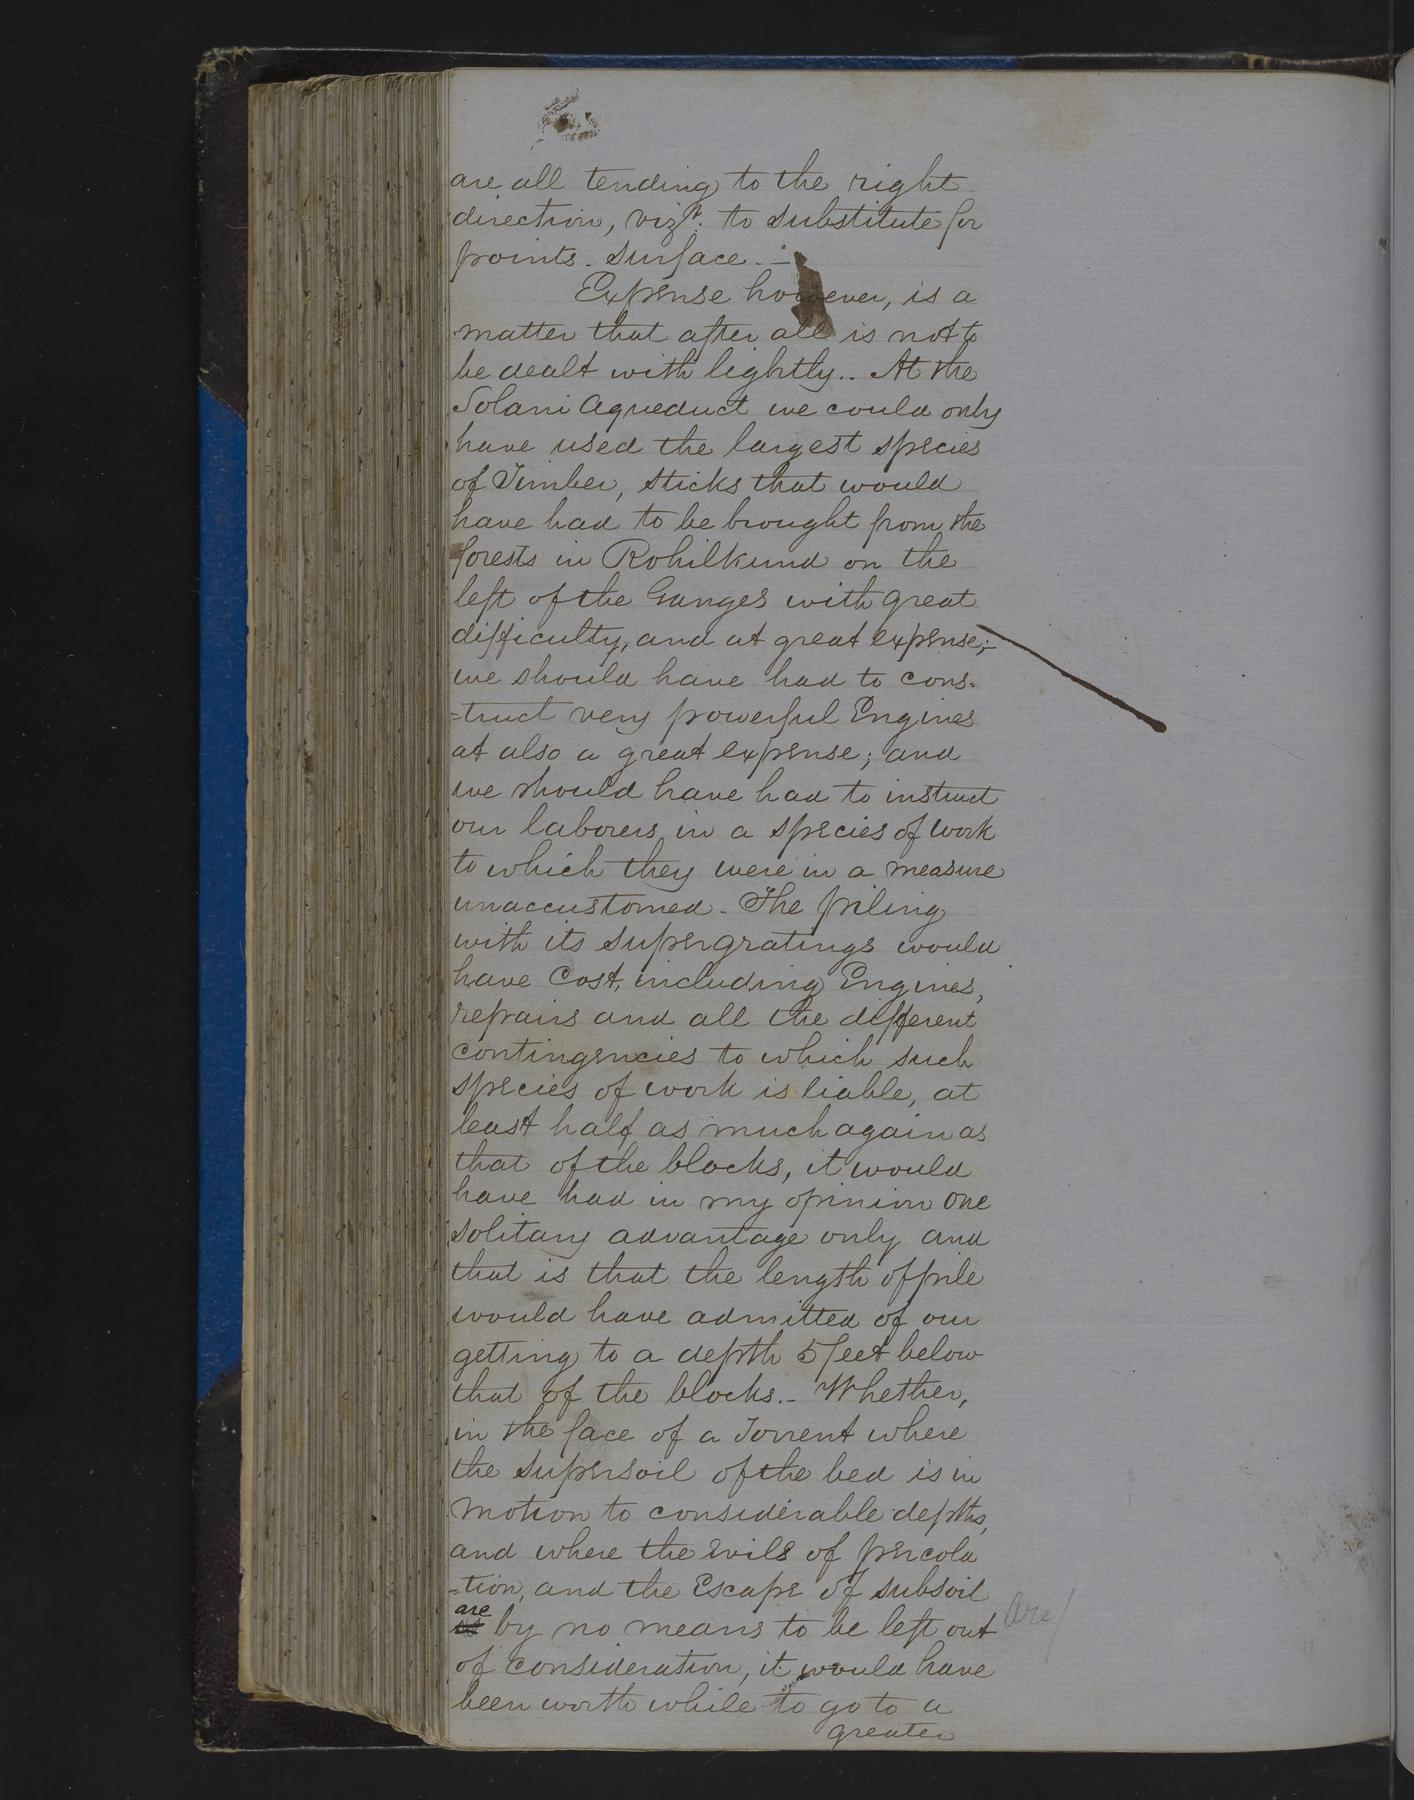 are all tending to the right
direction, vizt. to substitute for
points - surface. -
Expense however, is a
matter that after all is not to
be dealt with lightly.. At the
Solani Aqueduct we could only
have used the largest species
of Timber, sticks that would
have had to be brought from the
forests in Rohilkund on the
left of the Ganges with great
difficulty, and at great expense;-
we should have had to cons-
-truct very powerful Engines
at also a great expense; and
we should have had to instruct
our laborers in a species of work
to which they were in a measure
unaccustomed - The piling
with its supergratings would
have Cost, including Engines,
repairs and all the different
contingencies to which such
species of work is liable, at
least half as much again as
that of the blocks, it would
have had in my opinion one
solitary advantage only and
that is that the length of pile
would have admitted of our
getting to a depth 5 feet below
that of the blocks.- Whether,
in the face of a Torrent where
the supersoil of the bed is in
motion to considerable depths,
and where the evils of percola
-tion, and the Escape of subsoil
are
is by no means to be left out are/
of consideration, it would have
been worth while to go to a
greater